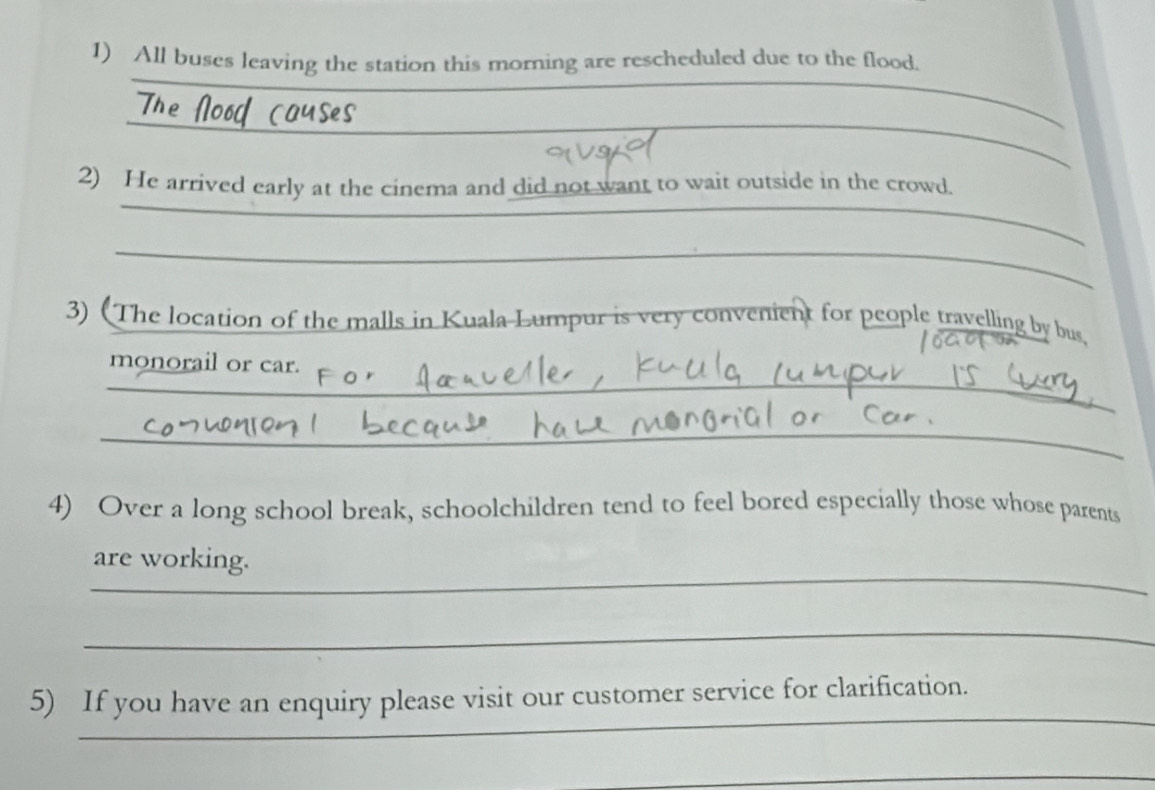 1) All buses leaving the station this morning are rescheduled due to the flood.
The flood causes
avoid
2) He arrived early at the cinema and did not want to wait outside in the crowd.
3) (The location of the malls in Kuala Lumpur is very convenient) for people travelling by bus,
monorail or car.
For , kuula lumpur is very
because have monorial or car.
4) Over a long school break, schoolchildren tend to feel bored especially those whose parents
are working.
5) If you have an enquiry please visit our customer service for clarification.